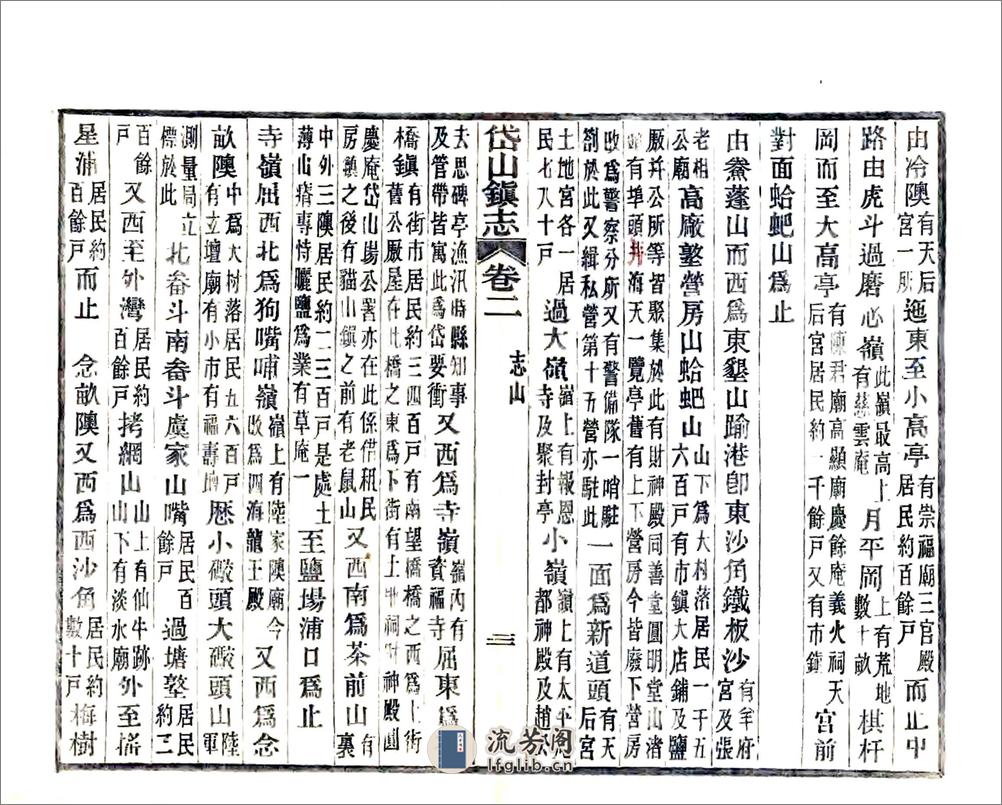 由冷隩有天后宮一所迤東至小高亭有崇福廟三官殿居民約百餘戶而止中
路由虎斗過磨心嶺此嶺最高上有慈雲庵月平岡上有荒地數十畝棋杆
岡而至大高亭有陳君廟高顯廟慶餘庵義火祠天后宮居民約一千餘戶又有市鎮宮前
對面蛤蚆山爲止
由鰲蓬山而西爲東墾山踰港卽東沙角鐵板沙有羊府宮及張
老相公廟高廠墼營房山蛤蚆山山下爲大村落居民一千五六百戶有市鎮大店鋪及鹽
廠幷公所等皆聚集於此有財神殿同善堂圓明堂山渚有埠頭海天一覽亭舊有上下營房今皆廢下營房
改爲警察分所又有警備隊一哨駐劄於此又緝私營第十五營亦駐此一面爲新道頭有天后宮
土地宮各一居民七八十戶過大嶺嶺上有報恩寺及聚封亭小嶺嶺上有太平都神殿及趙
岱山鎮志 卷二 志山 三
夫思碑亭漁汛時縣知事及管帶皆寓此爲岱要衝又西爲寺嶺嶺內有資福寺屈東爲
橋鎮有街市居民約三四百戶有南望橋橋之西爲上街舊公廠屋在此橋之東爲下街有土地祠財神殿圓
慶庵岱山場公署亦在此係借租民房鎮之後有貓山鎮之前有老鼠山又西南爲茶前山有裏
中外三隩居民約二三百戶是處土薄山瘠專恃曬鹽爲業有草庵一至鹽場浦口爲止
寺嶺屈西北爲狗嘴哺嶺嶺上有陸家隩廟今改爲四海龍王殿又西爲念
畝隩中爲大村落居民五六百戶有立壇廟有小市有福壽歷小礮頭大礮頭山陸軍
測量局立標於此北畚斗南畚斗虞家山嘴居民百餘戶過塘墼居民約三
百餘戶又西至外灣居民約百餘戶拷網山山上有仙牛跡山下有淡水廟外至搖
星浦居民約百餘戶而止 念畝隩又西爲西沙角居民約數十戶梅樹
流芳阁
lfglib.cn